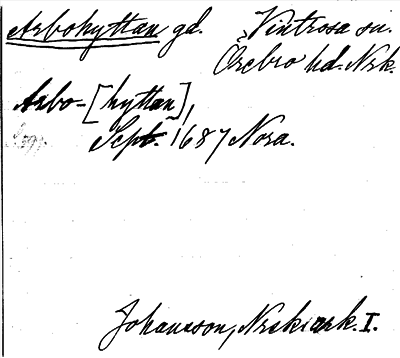 Arbohyttan gd. Vintrosa sn.
Örebro hd. Nrk.
Arbo-[hyttan],
Sept. 1687 Nora.
Johansson, Nrski ark. I.